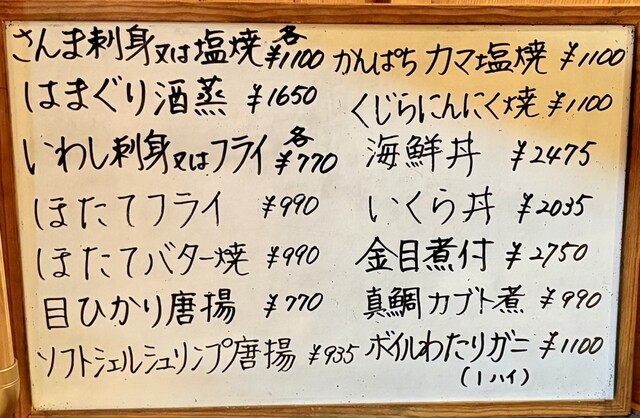 さんま刺身又は塩焼 各¥1100
はまぐり酒蒸 ¥1650
いわし刺身又はフライ 各¥770
ほたてフライ ¥990
ほたてバター焼 ¥990
目ひかり唐揚 ¥770
ソフトシェルシュリンプ唐揚 ¥935
かんぱちカマ塩焼 ¥1100
くじらにんにく焼 ¥1100
海鮮丼 ¥2475
いくら丼 ¥2035
金目煮付 ¥2750
真鯛カブト煮 ¥990
ボイルわたりガニ ¥1100
(1ハイ)